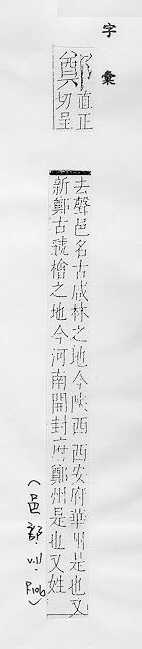 字彙
鄭
直正
切呈
去聲邑名古咸林之地今陝西西安府華州是也又
新鄭古虢檜之地今河南開封府鄭州是也又姓
(邑部 v.11. P10b)